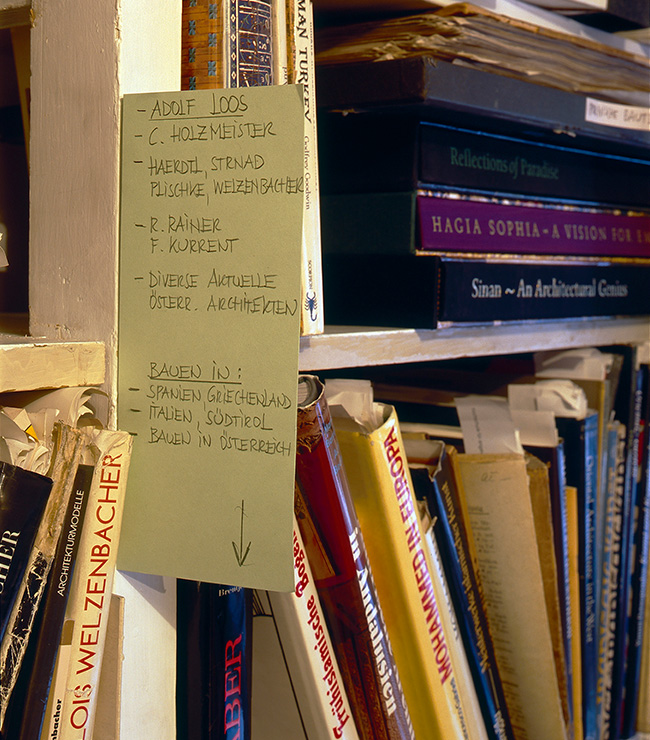 - ADOLF LOOS
- C. HOLZMEISTER
- HAERDTL, STRNAD
PLISCHKE, WELZENBACHER
- R. RAINER
F. KURRENT
- DIVERSE AKTUELLE
ÖSTERR. ARCHITEKTEN
BAUEN IN :
- SPANIEN, GRIECHENLAND
- ITALIEN, SÜDTIROL
- BAUEN IN ÖSTERREICH
TURKEY
Godfrey Goodwin
SCORPION
Reflections of Paradise
HAGIA SOPHIA - A VISION FOR
Sinan ~ An Architectural Genius
ARCHITEKTURMODELLE
LOIS WELZENBACHER
Frühislamische
Bogen
MOHAMMED IN EUROPA